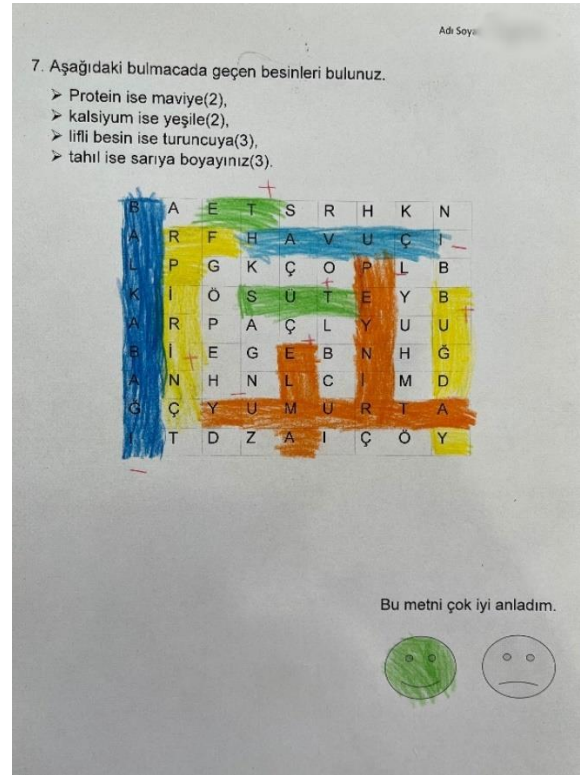 Adı Soya
7. Aşağıdaki bulmacada geçen besinleri bulunuz.
➢ Protein ise maviye(2),
➢ kalsiyum ise yeşile(2),
➢ lifli besin ise turuncuya(3),
➢ tahıl ise sarıya boyayınız(3).
B A E T S R H K N
A R F H A V U Ç I
L P G K Ç O P L B
K İ Ö S Ü T E Y B
A R P A Ç L Y U U
B İ E G E B N H Ğ
A N H N L C İ M D
Ğ Ç Y U M U R T A
I T D Z A I Ç Ö Y
Bu metni çok iyi anladım.